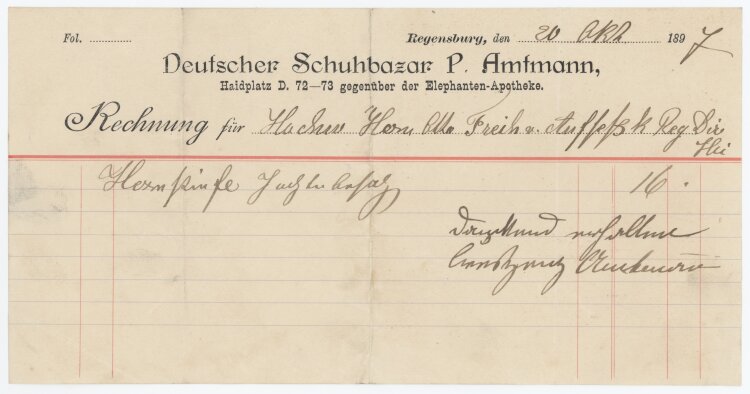 Fol. ............ Regensburg, den 20 Okt 1897
Deutscher Schuhbazar P. Amtmann,
Haidplatz D. 72—73 gegenüber der Elephanten-Apotheke.
Rechnung für Herrn Otto Freih v. Aufseß k Reg Dir
16.
dankend erhalten
Amtmann